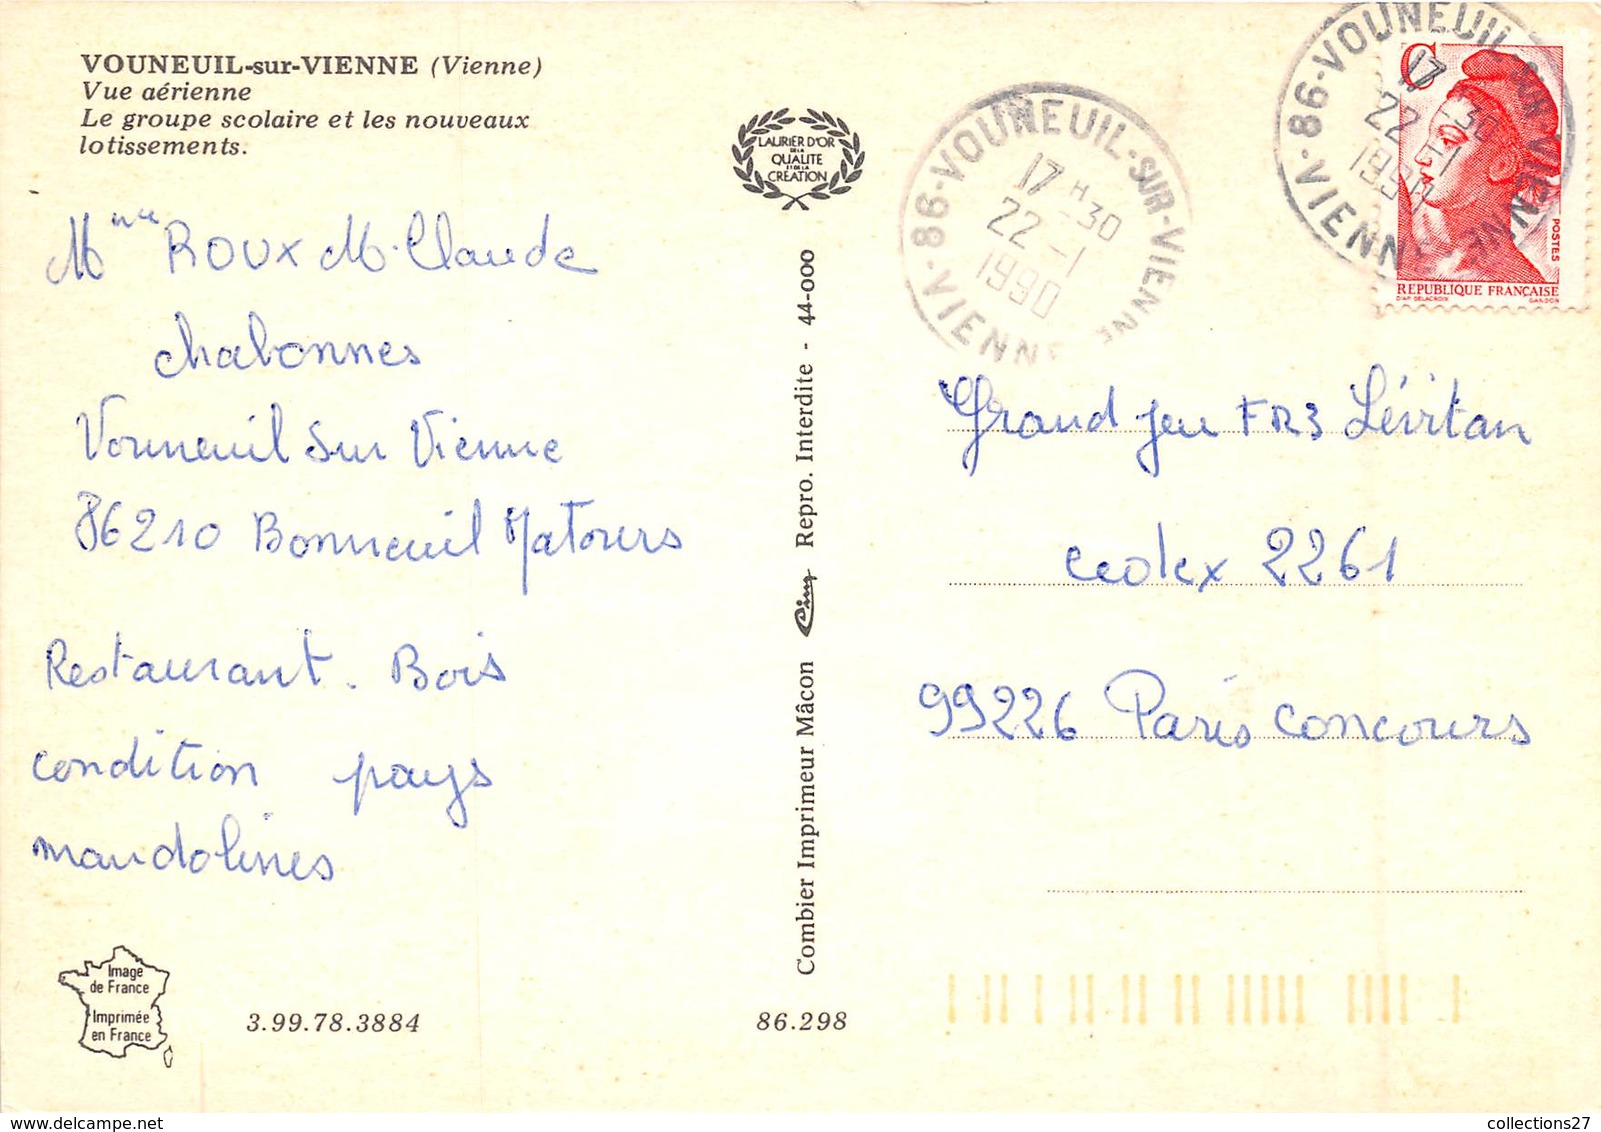 VOUNEUIL-sur-VIENNE (Vienne)
Vue aérienne
Le groupe scolaire et les nouveaux
lotissements.
LAURIER D'OR
DE LA
QUALITE
ET DE LA
CRÉATION
Mme ROUX M. Claude
chabonnes
Vouneuil Sur Vienne
86210 Bonneuil Matours
Restaurant. Bois
condition pays
mandolines
Image
de France
Imprimée
en France
3.99.78.3884
86.298
Combier Imprimeur Mâcon Cim Repro. Interdite - 44-000
86-VOUNEUIL-SUR-VIENNE
17 H 30
22 -1
1990
VIENNE
86-VOUNEUIL-SUR-VIENNE
17 H 30
22 -1
1990
VIENNE
C
POSTES
REPUBLIQUE FRANÇAISE
D'AP. DELACROIX GANDON
Grand jeu FR3 Lévitan
cedex 2261
99226 Paris concours
collections27